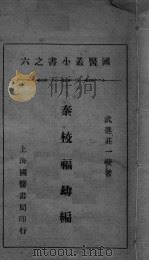 國醫小叢書之六
武進莊一夔著
秦校福幼編
上海國醫書局印行